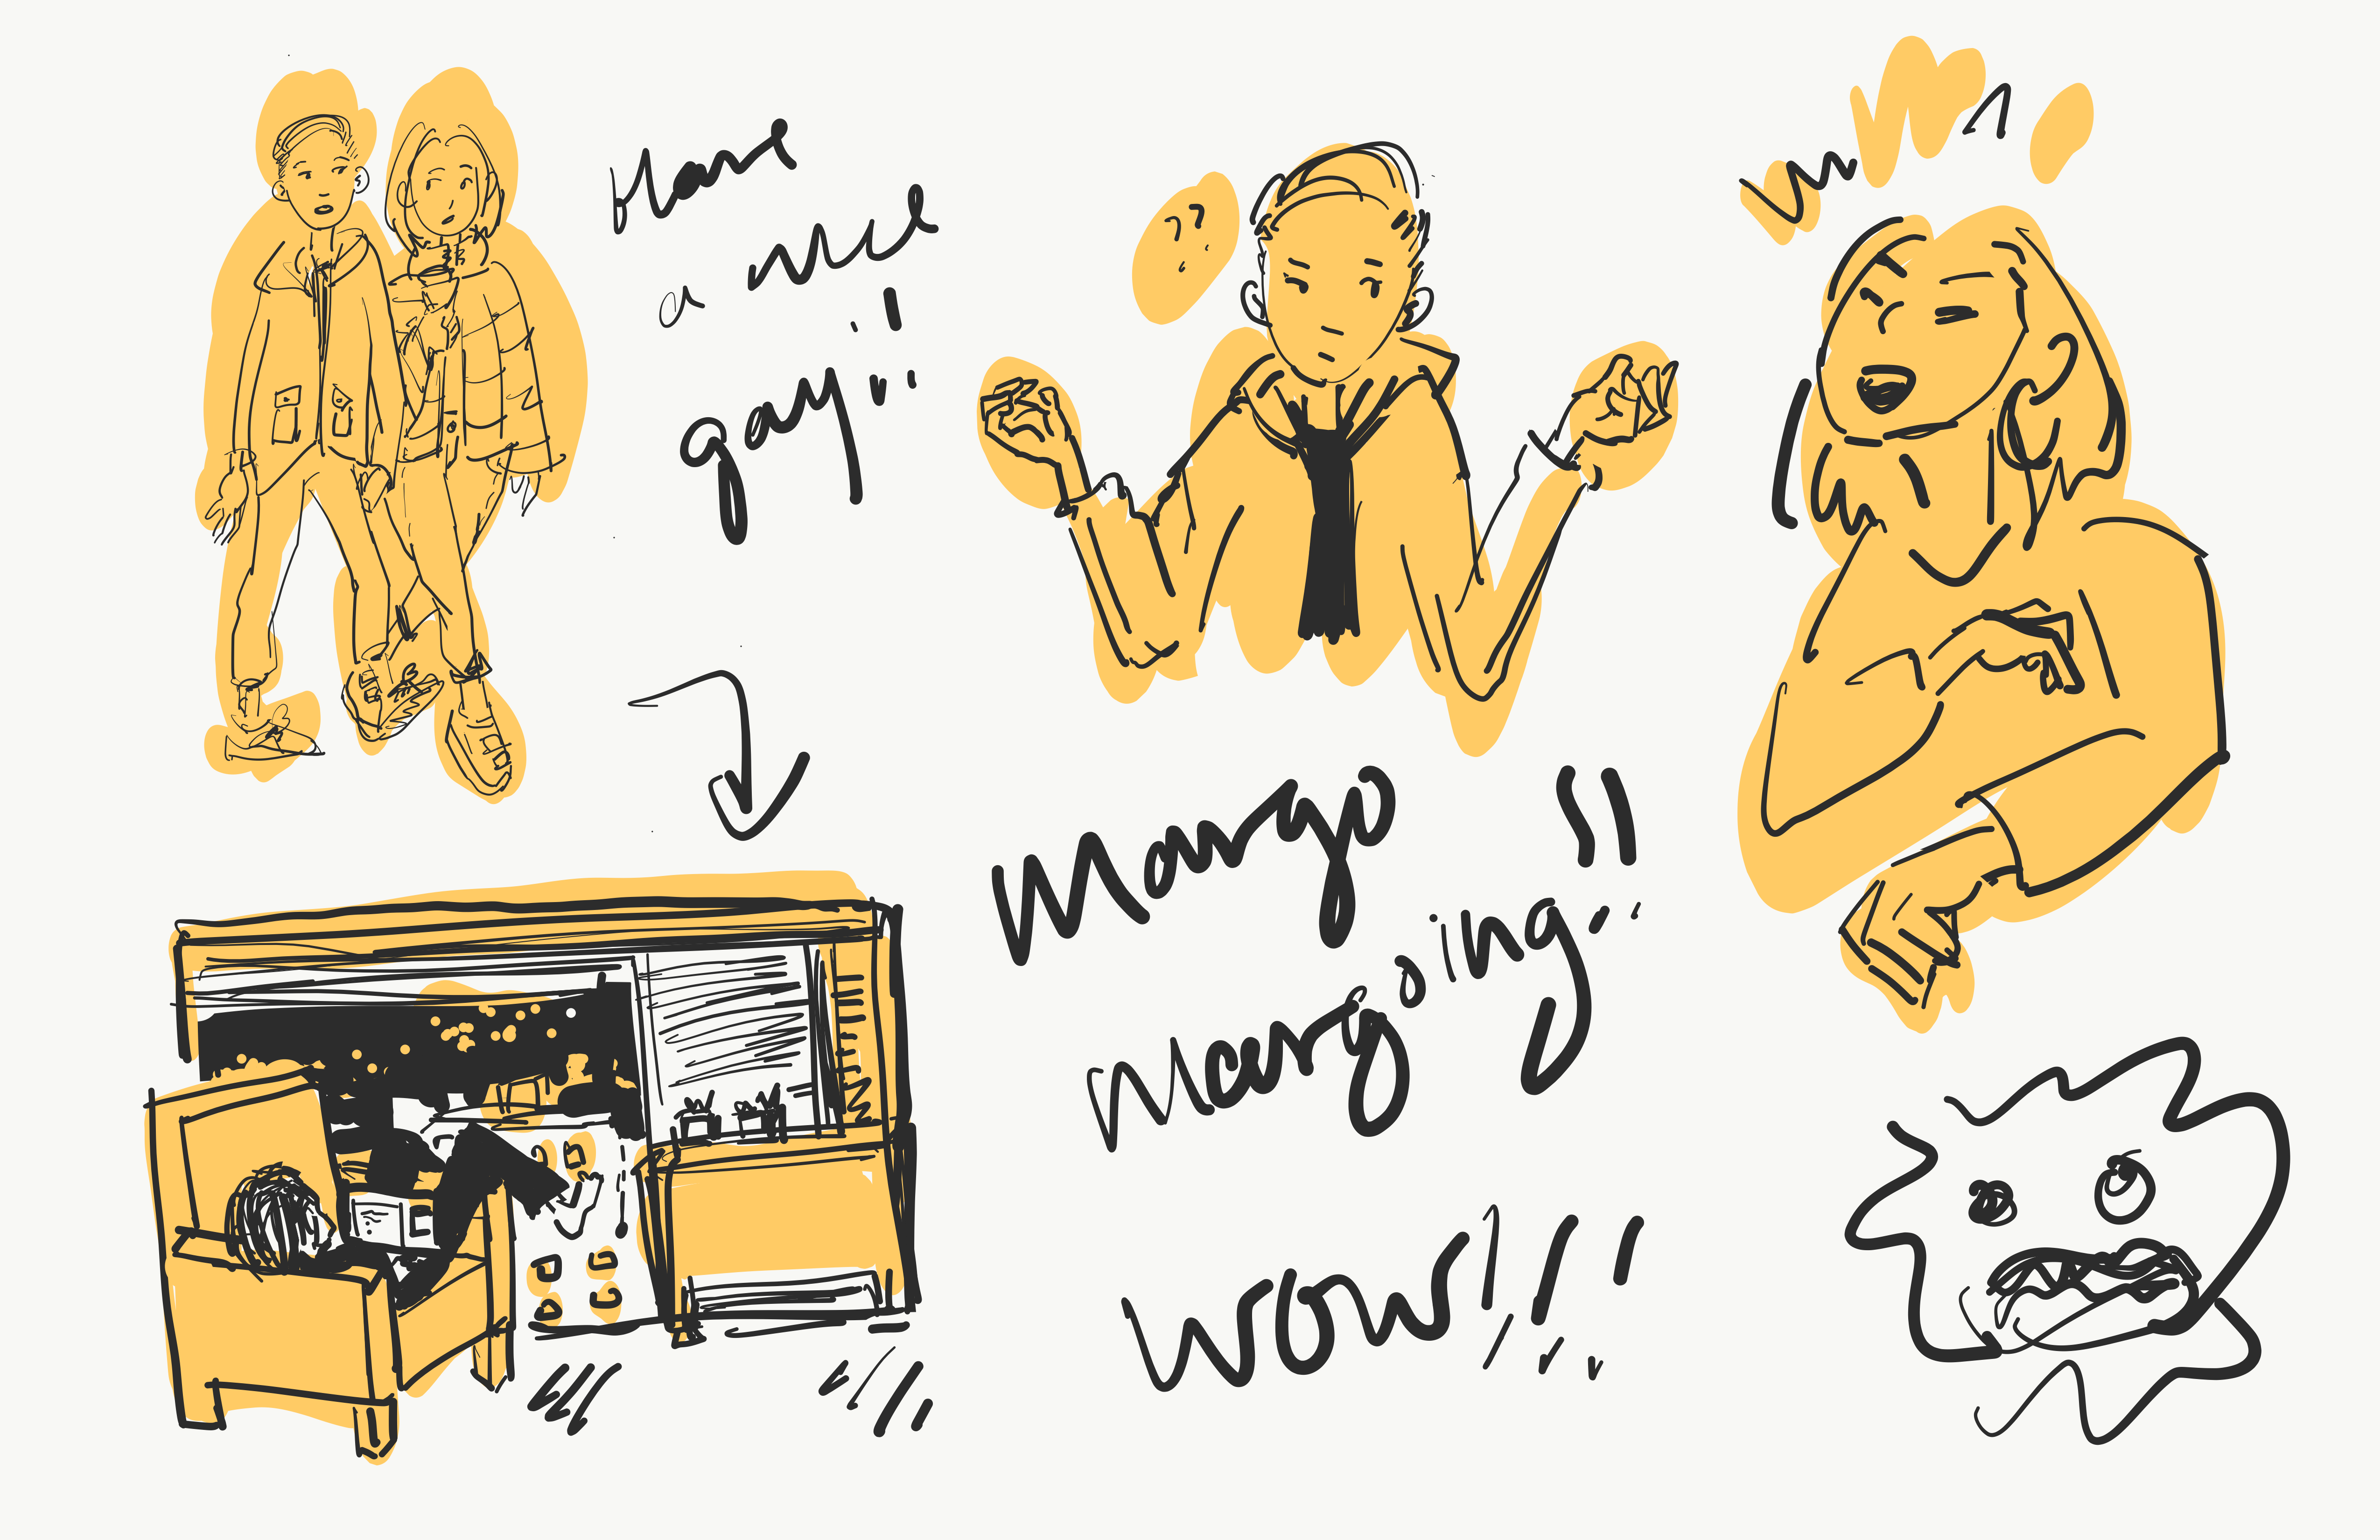 Have
a nice
gay!!
??
Mango
Mangoing!!
wow!!!